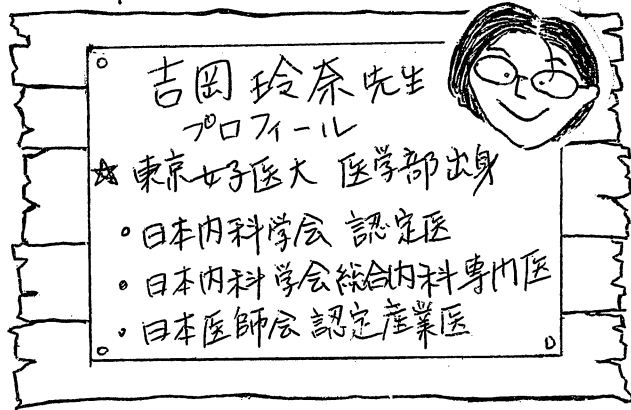 吉岡 玲奈先生
プロフィール
☆ 東京女子医大 医学部出身
・日本内科学会 認定医
・日本内科学会総合内科専門医
・日本医師会 認定産業医